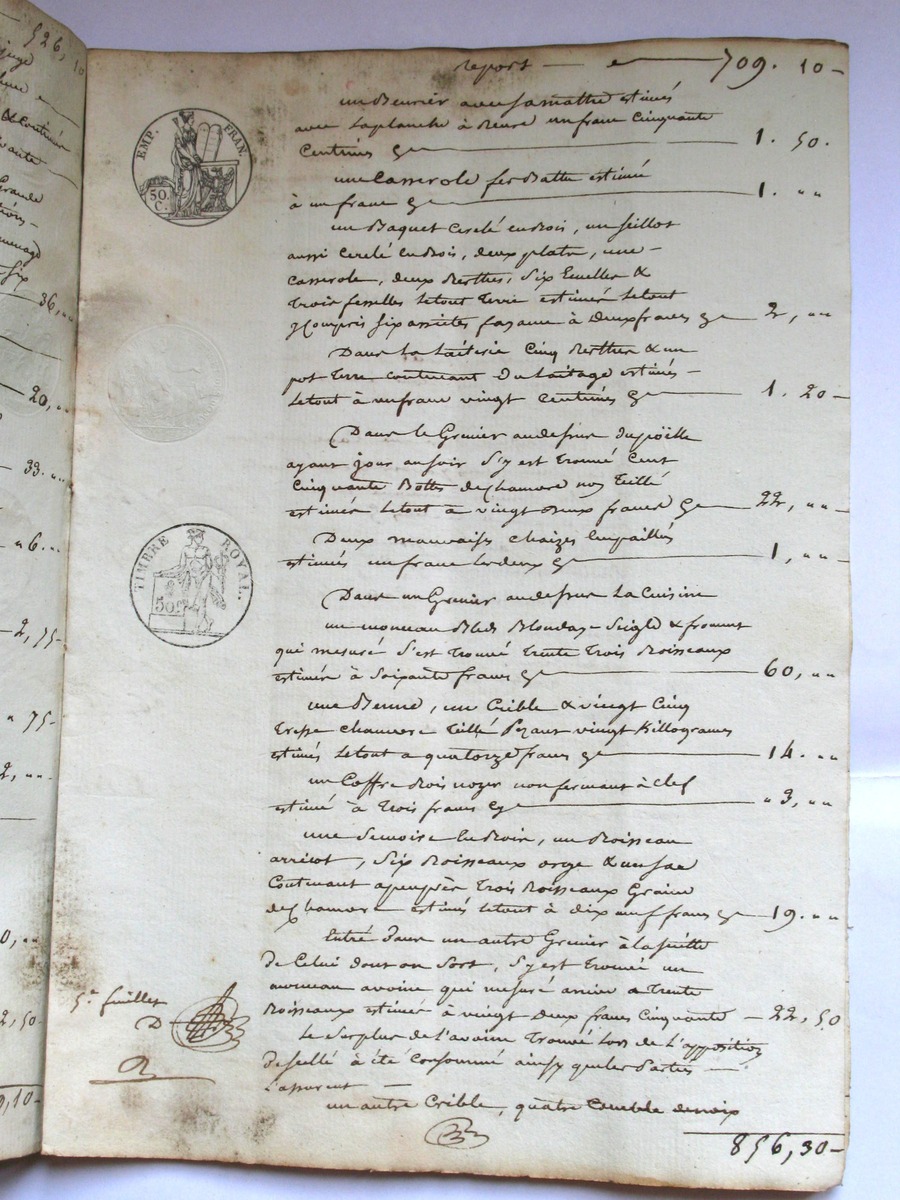 526, 10
36, ""
20, ""
33. ""
" 6. ""
2, 75
" 75
2, ""
0, ""
2, 50
9, 10
report — 709. 10
un Beurier avec sa matte estimés
avec la planche à Beure un franc Cinquante
Centimes 1. 50.
une Casserole fer Battu estimée
à un franc 1. ""
un Baquet Cerclé en Bois, un seillot
aussi Cerclé en Bois, deux plats, une
Casserole, deux Berthes, Six Ecuelles &
Trois fesselles le tout Terre estimés le tout
y Compris Six assietes fayance à deux francs 2, ""
Dans la Laiterie Cinq Berthes & un
pot Terre contenant du Laitage estimés
le tout à un franc vingt Centimes 1. 20
Dans le Grenier au dessus du poëlle
ayant jour au soir S'y est Trouvé Cent
Cinquante Bottes de Chanvre non Teillé
estimés le tout à vingt deux francs 22, ""
Deux mauvaises chaizes Empaillés
estimés un franc les deux 1, ""
Dans un Grenier au dessus la Cuisine
un monceau Bled Seigle & froment
qui mesuré S'est Trouvé Trente Trois Boisseaux
estimés à Soixante francs 60, ""
une Benne, un Crible & vingt Cinq
Tresse chanvre Teillé Pezant vingt Killogrames
estimés le tout a quatorze francs 14. ""
un Coffre Bois noyer non fermant à Clef
estimé à Trois francs " 3, ""
une en Bois, un Boisseau
arricot, Six Boisseaux orge & un sac
Contenant apeuprès Trois Boisseaux Graine
de Chanvre estimés le tout à dix neuf francs 19. ""
Entré dans un autre Grenier à la suitte
de Celui dont on Sort, S'y est Trouvé un
monceau avoine qui mesuré arrive a Trente
Boisseaux estimés à vingt deux francs Cinquante 22, 50
Le Surplus de l'avoine Trouvée Lors de L'apposition
de scellé à été Consommé ainsy que les Parties
L'assurent
un autre Crible, quatre de noix
856, 30
EMP. FRAN.
50 C.
TIMBRE ROYAL.
50 C.
5e feuillet